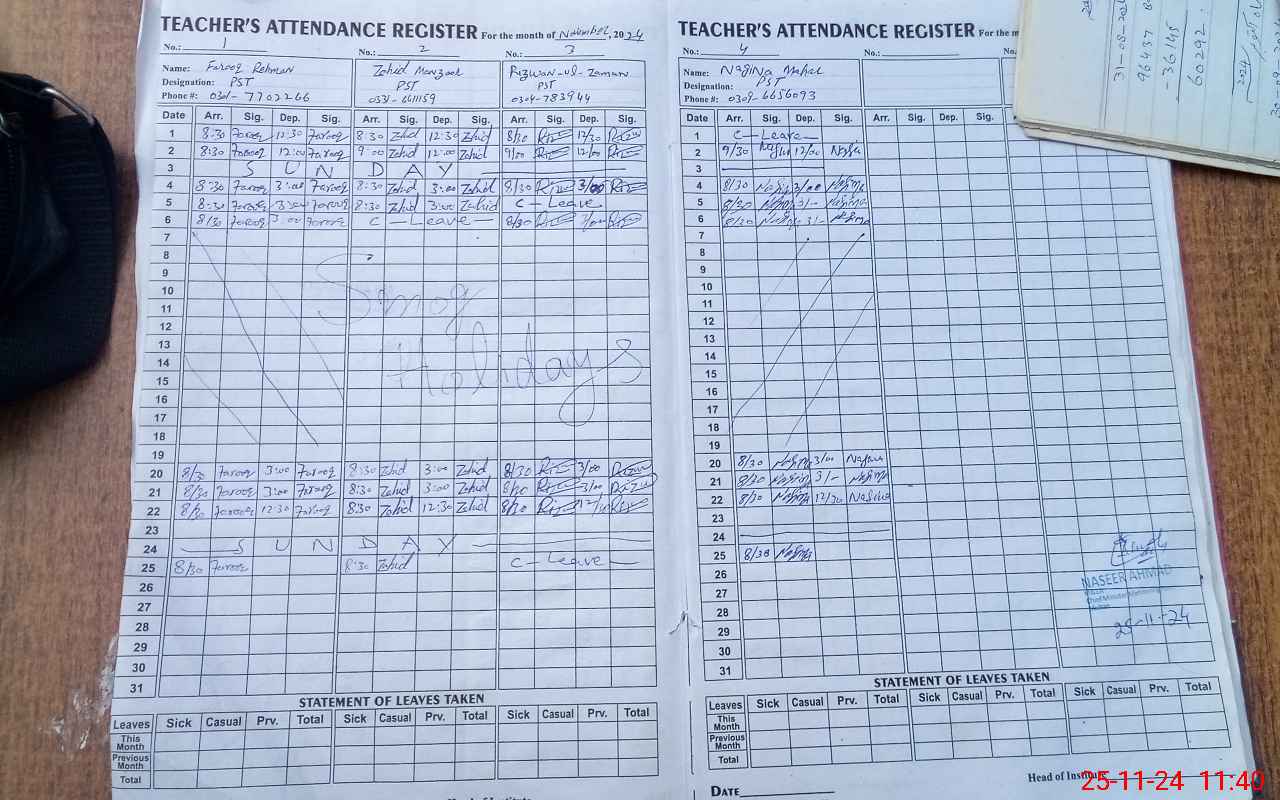 TEACHER'S ATTENDANCE REGISTER For the month of November, 2024
No.: 1 No.: 2 No.: 3
Name: Farooq Rehman Zahid Manzoor Rizwan-ul-Zaman
Designation: PST PST PST
Phone #: 0301-7702266 0331-6611159 0304-783944
Date Arr. Sig. Dep. Sig. Arr. Sig. Dep. Sig. Arr. Sig. Dep. Sig.
1 8:30 Farooq 12:30 Farooq 8:30 Zahid 12:30 Zahid 8/30 Riz 12/30 Rizw
2 8:30 Farooq 12:00 Farooq 9:00 Zahid 12:00 Zahid 9/00 Riz 12/00 Riz
3 SUNDAY
4 8:30 Farooq 3:00 Farooq 8:30 Zahid 3:00 Zahid 8/30 Riz 3/00 Riz
5 8:30 Farooq 3:00 Farooq 8:30 Zahid 3:00 Zahid C-Leave
6 8/30 Farooq 3:00 Farooq C-Leave 8/30 Riz 3/00 Riz
7
8
9
10 Smog
11
12
13
14 Holidays
15
16
17
18
19
20 8/30 Farooq 3:00 Farooq 8:30 Zahid 3:00 Zahid 8/30 Riz 3/00 Rizw
21 8/30 Farooq 3:00 Farooq 8:30 Zahid 3:00 Zahid 8/30 Riz 3/00 Rizw
22 8/30 Farooq 12:30 Farooq 8:30 Zahid 12:30 Zahid 8/30 Riz Riz
23
24 SUNDAY
25 8/30 Farooq 8:30 Zahid C-Leave
26
27
28
29
30
31
STATEMENT OF LEAVES TAKEN
Leaves Sick Casual Prv. Total Sick Casual Prv. Total Sick Casual Prv. Total
This Month
Previous Month
Total
TEACHER'S ATTENDANCE REGISTER For the m
No.: 4 No.: No.
Name: Nagina
Designation: PST
Phone #: 0309-6656093
Date Arr. Sig. Dep. Sig. Arr. Sig. Dep. Sig. Arr. Sig. Dep. Sig.
1 C-Leave
2 9/30 Nagina 12/00 Nagina
3
4 8/30 Nagina 3/00 Nagina
5 8/30 Nagina 3/- Nagina
6 8/30 Nagina 3/- Nagina
7
8
9
10
11
12
13
14
15
16
17
18
19
20 8/30 Nagina 3/00 Nagina
21 8/30 Nagina 3/- Nagina
22 8/30 Nagina 12/30 Nagina
23
24
25 8/30 Nagina
26
27
28
29
30
31
NASEER AHMAD
Chief Minister Monitoring
25-11-24
STATEMENT OF LEAVES TAKEN
Leaves Sick Casual Prv. Total Sick Casual Prv. Total Sick Casual Prv. Total
This Month
Previous Month
Total
Head of Institute
DATE
31-08-202
96437
-36145
60292
25-11-24 11:40